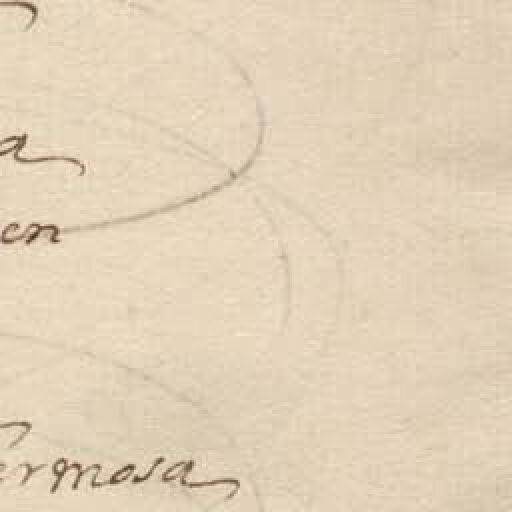 a
en
ermosa